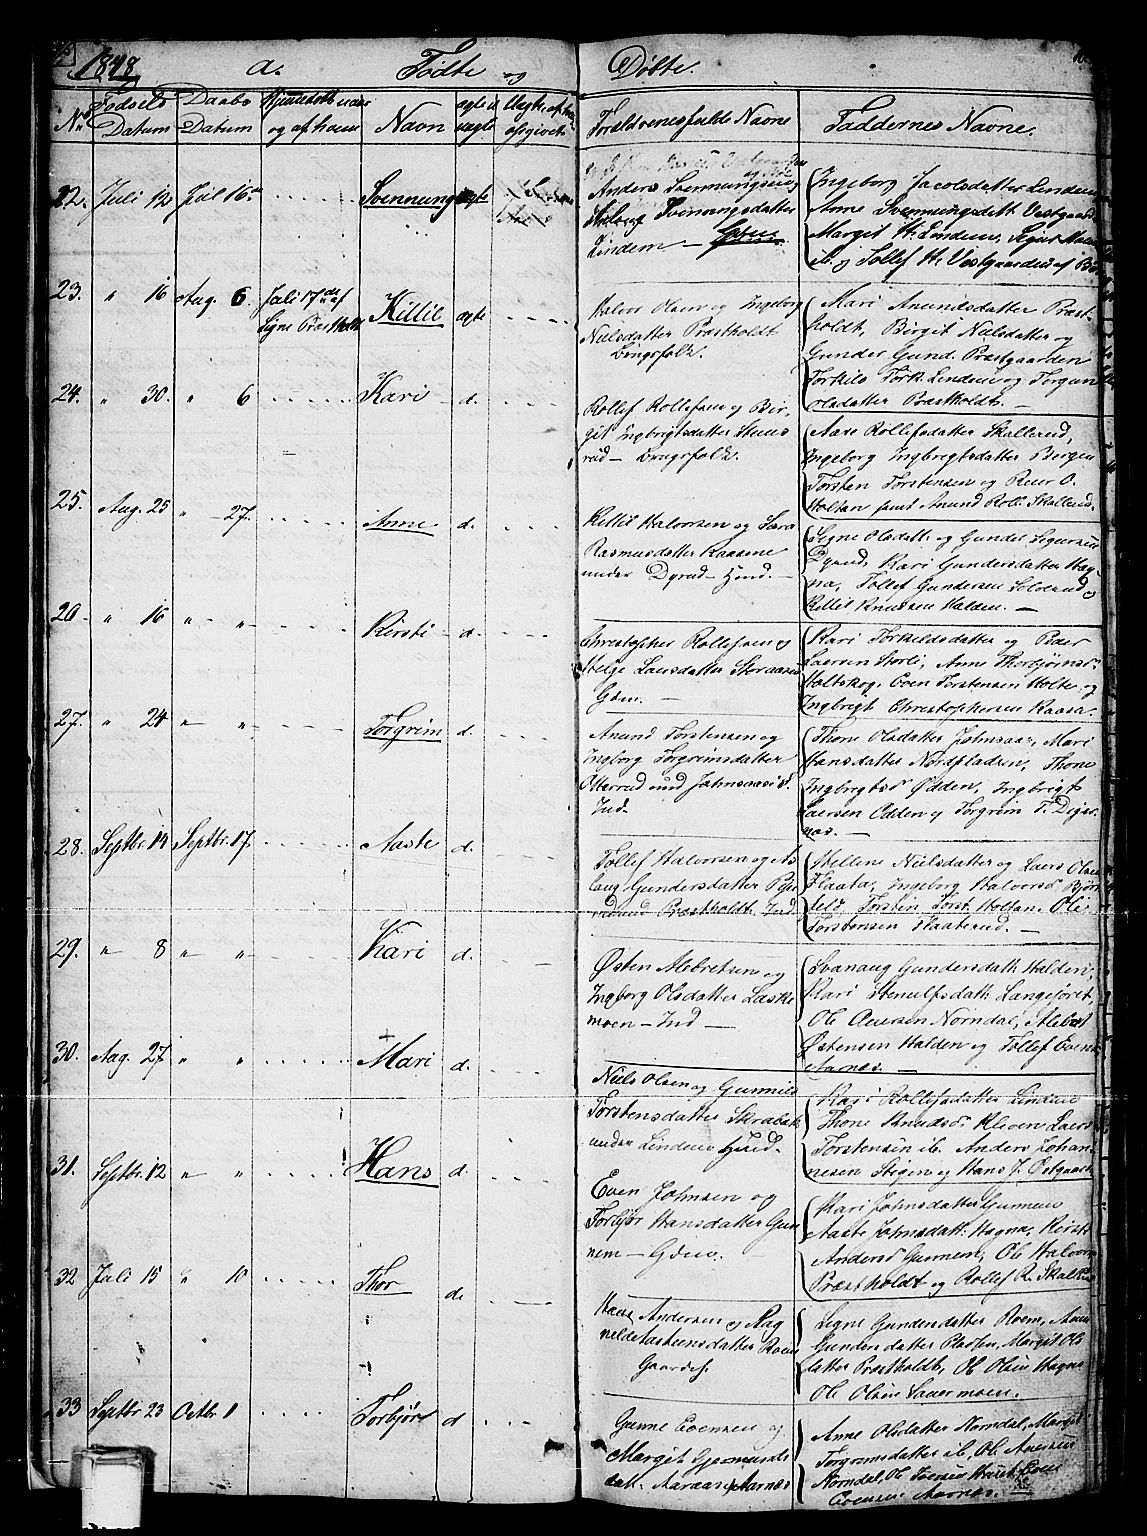 1848 a. Födte og Döbte.
No Födsels Datum Daabs Datum Hjemmedöbt naar og af hvem Navn ægte el uægte Forældrenes fulde Navne Faddernes Navne.
22. Juli 12 Jul 16 Svennung ægte
Anders Svennungsen og
Svennungsdatter
Lindem —
Ingeborg Jacobsdatter Lindem
Anne Svennungsdatt Vestgaard
Margit H. Lindem, Sigur
ib. og Tollef H. Vestgaarden af
23. " 16 Aug. 6. Juli 17de af Signe Præstholdt Kittil ægte
Halvor Olsen og Ingeborg
Nielsdatter Præstholdt
Brugsfolk.
Mari Anundsdatter Præst-
holdt, Birgit Nielsdatter og
Gunder Gund. Præstgaarden
Torkild Tork. Lindem og Torgun
Olsdatter Præstholdt. —
24. " 30. " 6 Kari d.
Rollef Rollefsen og Bir-
git Ingbrigtsdatter Stens-
rud — Brugsfolk.
Aase Rollefsdatter Skallerud,
Ingeborg Ingbrigtsdatter Bergen
Torsten Torstensen og Peder O.
Holtan samt Anund Roll. Skallerud.
25. Aug. 25 " 27. Anne d.
Kettil Halvorsen og Sara
Rasmusdatter Kaasene
under Dyrud — Husmd. —
Signe Olsdatt. og Gunder Sigursen
Dyrud, Kari Gundersdatter Hag-
na, Tollef Gundersen Solerud og
Kittil Knudsen Halden. —
26. " 16 " " Kirsti d.
Christopher Rollefsen og
Helge Laersdatter Storaasen
Gdm. —
Kari Torkildsdatter og Peder
Laersen Storli, Anne Thorbjörnsd.
Holtskog, Even Torstensen Holte og
Ingbrigt Christophersen Kaasa.
27. " 24 " " Torgrim d.
Anund Torstensen og
Ingborg Torgrimsdatter
Otterud und Johnsaas i d.
Ind.
Thone Olsdatter Johnsaas, Mari
Hansdatter Nordpladsen, Thone
Ingbrigtsd Odden, Ingbrigt
Laersen Odden og Torgrim T. Diger-
næs. —
28. Septbr. 14 Septbr. 17. Aaste d.
Tollef Halvorsen og As-
laug Gundersdatter
und Præstholdt. Ind
Hellene Nielsdatter og Laers Olsen
Flaata, Ingeborg Halvorsd Björn-
Torsten Torst. Holtan. Ole
Torstensen Flaaterud. —
29. " 8 " " Kari d.
Østen Alebretsen og
Ingborg Olsdatter Laske-
moen — Ind —
Svanaug Gundersdatt. Halden,
Kari Stenulfsdatt. Langejoret,
Ole Aversen Norndal, Alebret
Østensen Halden og Tollef Evens.
Aarnæs. —
30. Aug. 27 " " Mari d.
Niels Olsen og Gunnild
Torstensdatter Skrabek
under Lindem Husmd.
Kari Rollefsdatter Lindem
Thone Knudsd Kleven Laers
Torstensen ib. Anders Johan-
nesen Stegen og Hans J. Ostgaard
31. Septbr. 12 " " Hans d.
Even Johnsen og
Torbjör Hansdatter Gun-
nem — Gdm. —
Mari Johnsdatter Gunnem
Aaste Johnsdatt. Hagna, Kirsti
Andersd Gunnem, Ole Halvors.
Præstholdt og Rollef R. Skallerud
32 Juli 15 " 10 Thor d.
Hans Andersen og Rag-
nild Aastensdatter Roem
Gaardsf.
Signe Gundersdatter Roem, Anne
Gundersdatter Pladsen, Margit Ols-
datter Præstholdt, Ole Olsen Hagna
Ole Olsen Sauermoen.
33 Septbr. 23 Octbr. 1 Torbjör d
Gunne Evensen og
Margit Gjermunds-
datt. Aaraas Aarnæs
Anne Olsdatter Norndal, Margit
Torgrimsdatter ib, Ole Aversen
Norndal, Ole Even
Evensen Aarnæs.